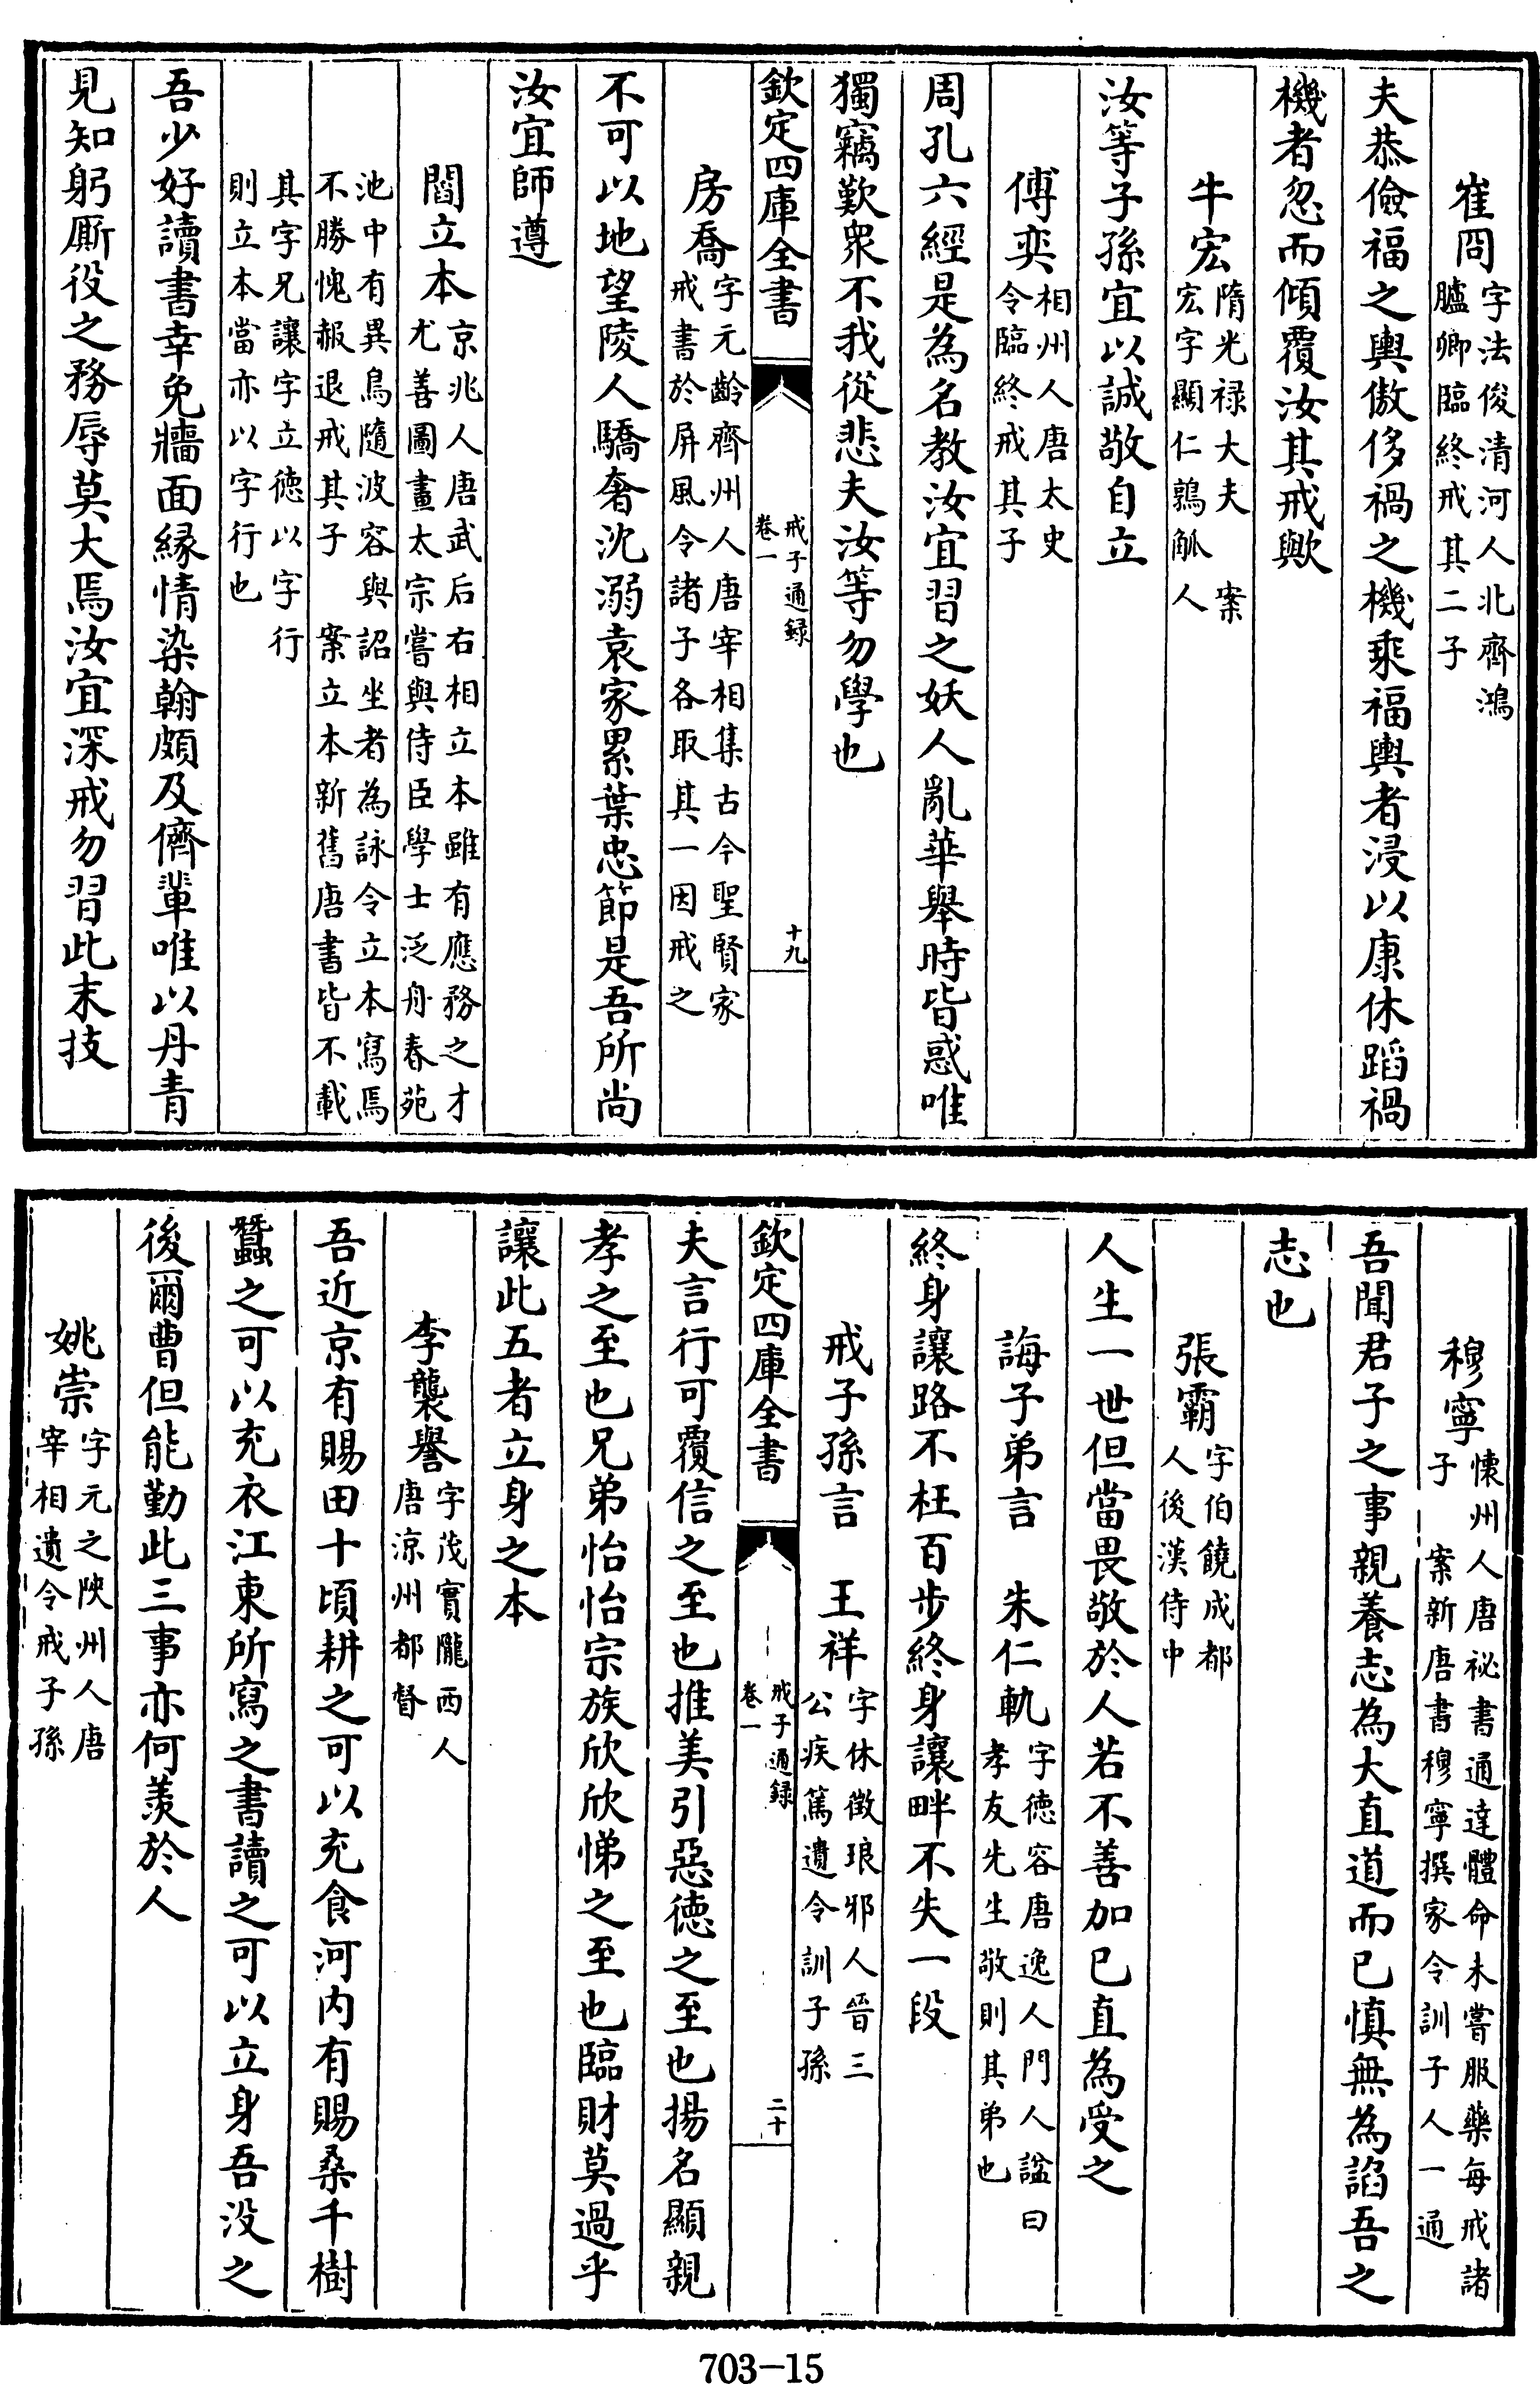 崔冏字法俊清河人北齊鴻臚卿臨終戒其二子
夫恭儉福之輿傲侈禍之機乘福輿者浸以康休蹈禍
機者忽而傾覆汝其戒歟
牛宏隋光禄大夫 案宏字顯仁鶉觚人
汝等子孫宜以誠敬自立
傅奕相州人唐太史令臨終戒其子
周孔六經是為名教汝宜習之妖人亂華舉時皆惑唯
獨竊歎衆不我從悲夫汝等勿學也
欽定四庫全書 戒子通録卷一 十九
房喬字元齡齊州人唐宰相集古今聖賢家戒書於屏風令諸子各取其一因戒之
不可以地望陵人驕奢沈溺袁家累葉忠節是吾所尚
汝宜師遵
閻立本京兆人唐武后右相立本雖有應務之才尤善圖畫太宗嘗與侍臣學士泛舟春苑
池中有異鳥隨波容與詔坐者為詠令立本寫焉不勝愧赧退戒其子 案立本新舊唐書皆不載
其字兄讓字立徳以字行則立本當亦以字行也
吾少好讀書幸免牆面緣情染翰頗及儕輩唯以丹青
見知躬厮役之務辱莫大焉汝宜深戒勿習此末技
穆寧懐州人唐祕書通達體命未嘗服藥每戒諸子 案新唐書穆寧撰家令訓子人一通
吾聞君子之事親養志為大直道而已慎無為諂吾之
志也
張霸字伯饒成都人後漢侍中
人生一世但當畏敬於人若不善加已直為受之
誨子弟言 朱仁軌字徳容唐逸人門人諡曰孝友先生敬則其弟也
終身讓路不枉百步終身讓畔不失一段
戒子孫言 王祥字休徴琅邪人晉三公疾篤遺令訓子孫
欽定四庫全書 戒子通録卷一 二十
夫言行可覆信之至也推美引惡徳之至也揚名顯親
孝之至也兄弟怡怡宗族欣欣悌之至也臨財莫過乎
讓此五者立身之本
李襲譽字茂實隴西人唐涼州都督
吾近京有賜田十頃耕之可以充食河内有賜桑千樹
蠶之可以充衣江東所寫之書讀之可以立身吾没之
後爾曹但能勤此三事亦何羨於人
姚崇字元之陜州人唐宰相遺令戒子孫
703-15